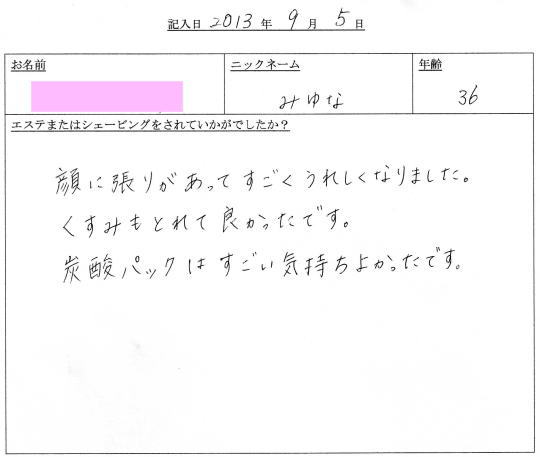 記入日 2013 年 9 月 5 日
お名前 ニックネーム 年齢
みゆな 36
エステまたはシェービングをされていかがでしたか？
顔に張りがあってすごくうれしくなりました。
くすみもとれて良かったです。
炭酸パックはすごい気持ちよかったです。